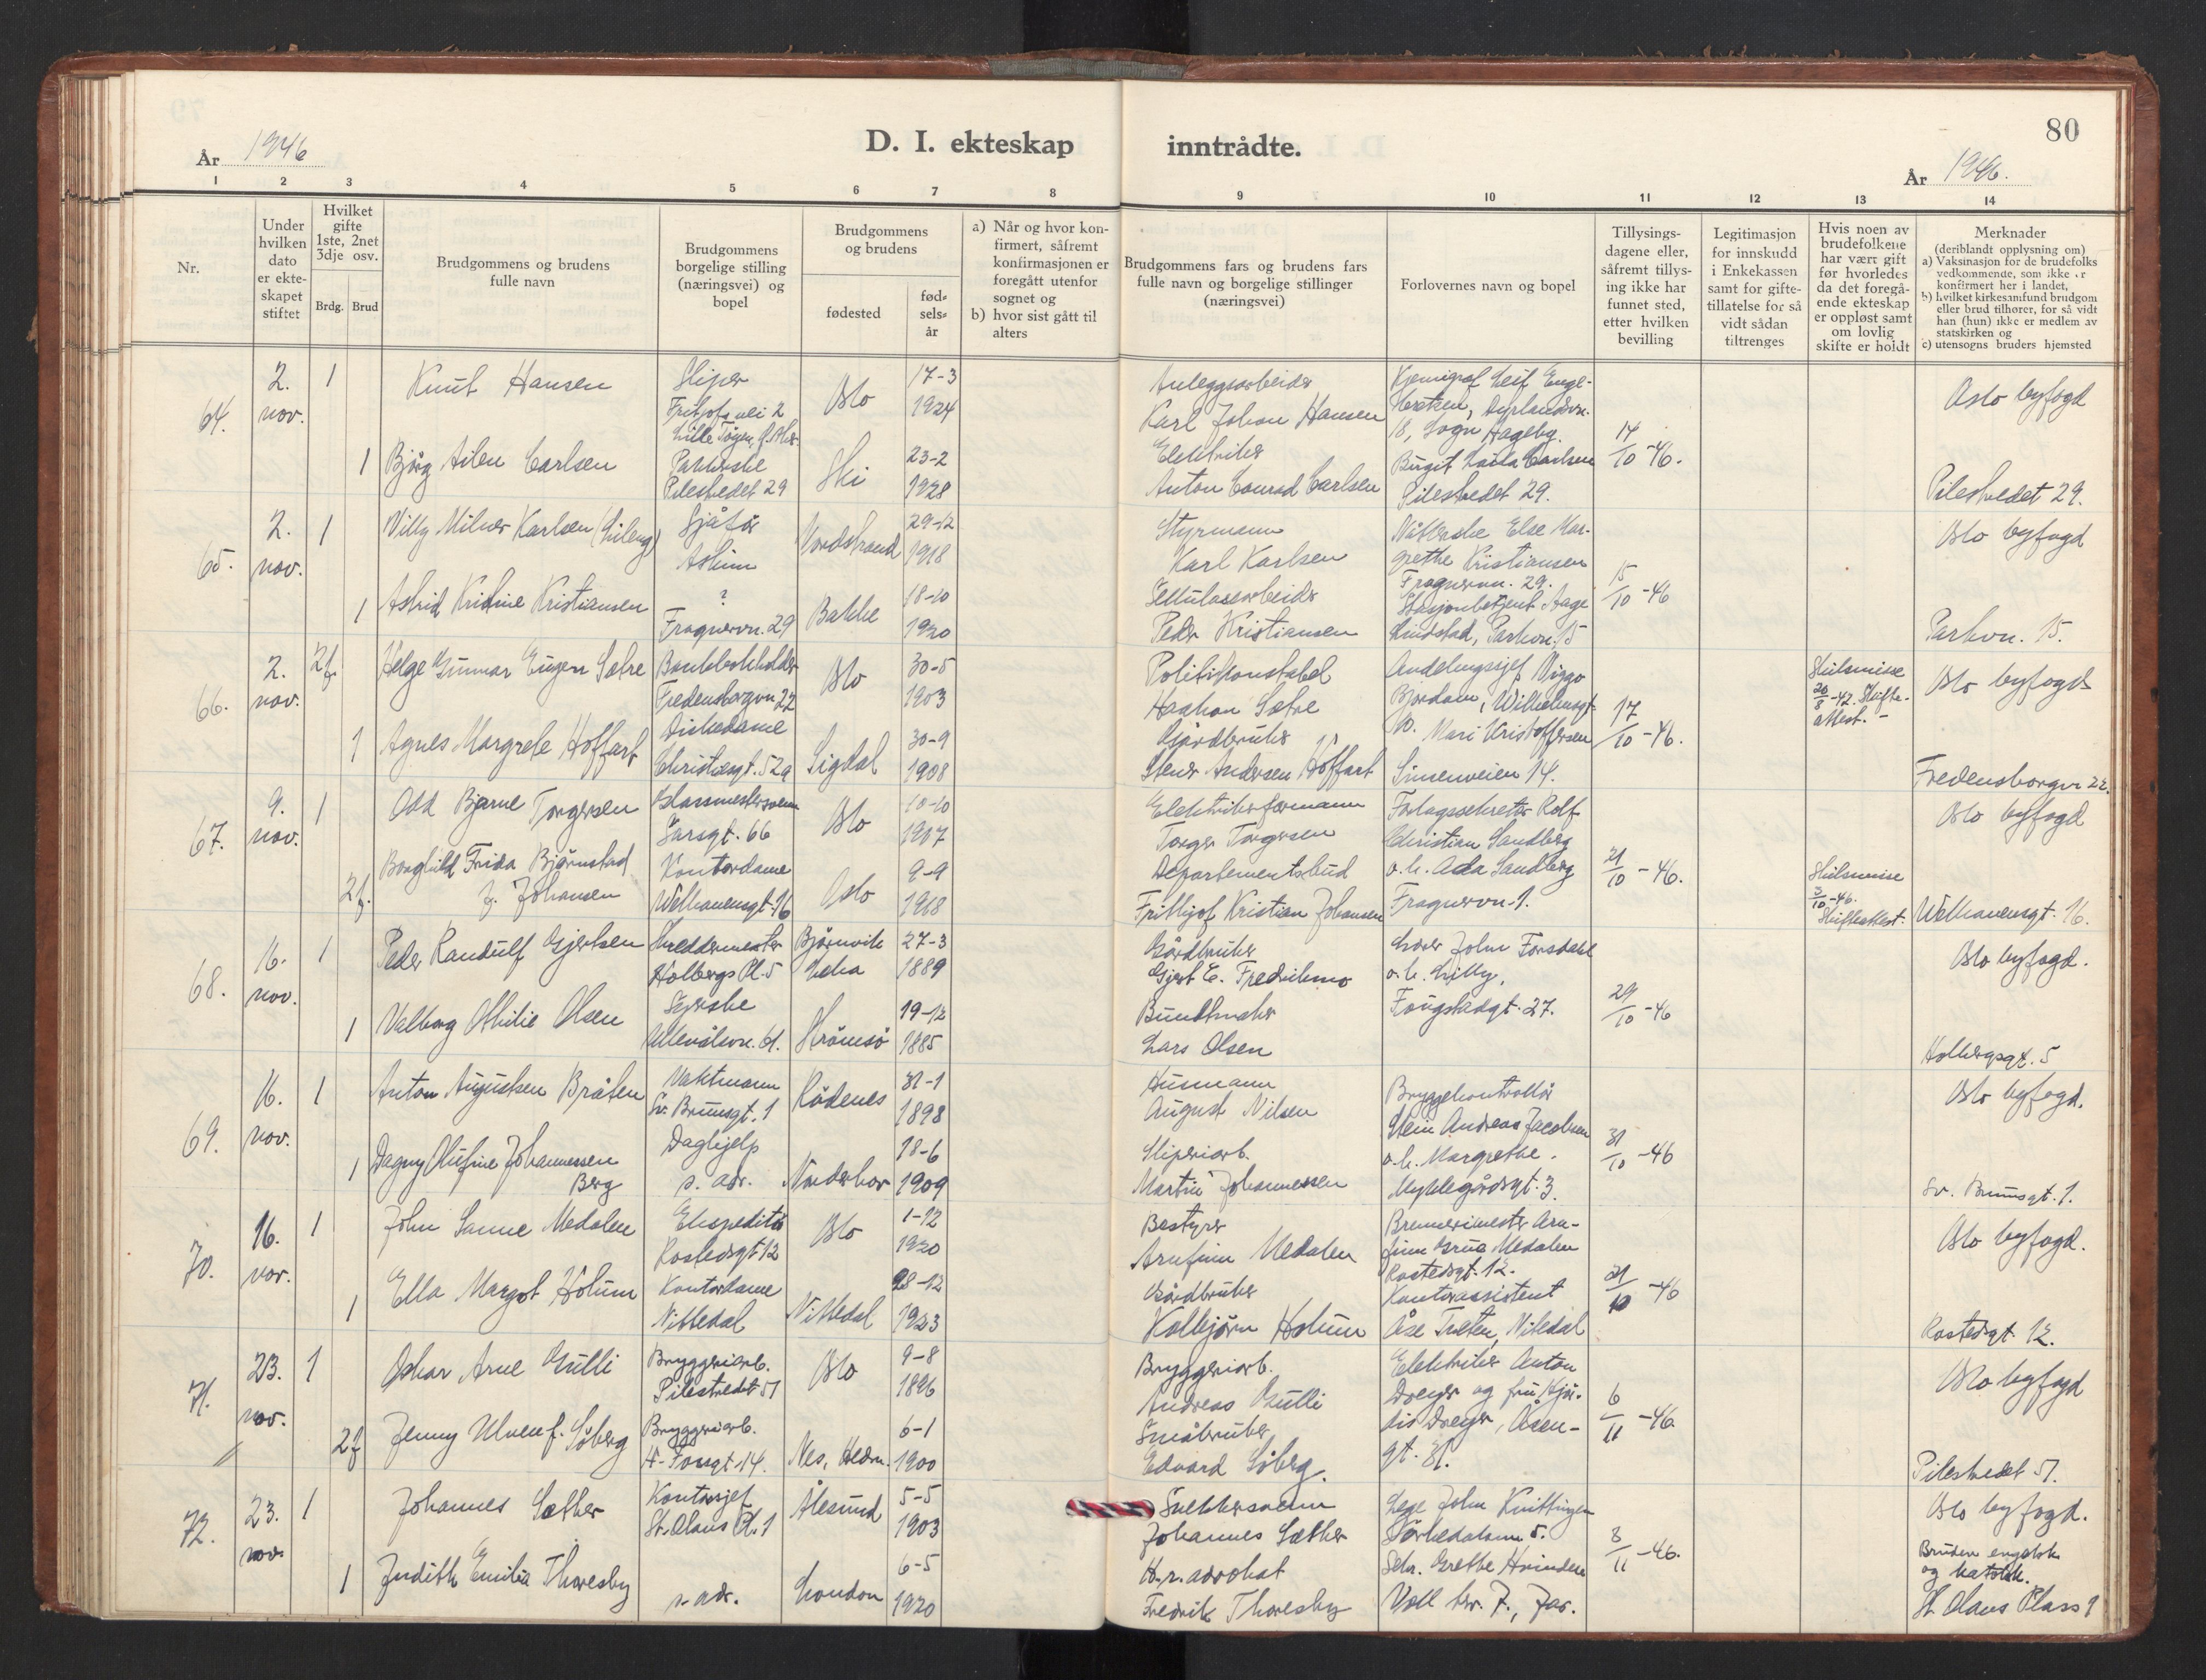 80
År 1946
D. I. ekteskap inntrådte.
År 1946.
1 2 3 4 5 6 7 8 9 10 11 12 13 14
Nr.
Under hvilken dato er ekte-skapet stiftet
Hvilket gifte 1ste, 2net 3dje osv.
Brdg. Brud
Brudgommens og brudens fulle navn
Brudgommens borgelige stilling (næringsvei) og bopel
Brudgommens og brudens
fødested
fød-sels-år
a) Når og hvor kon-firmert, såfremt konfirmasjonen er foregått utenfor sognet og
b) hvor sist gått til alters
Brudgommens fars og brudens fars fulle navn og borgelige stillinger (næringsvei)
Forlovernes navn og bopel
Tillysings-dagene eller, såfremt tillys-ing ikke har funnet sted, etter hvilken bevilling
Legitimasjon for innskudd i Enkekassen samt for gifte-tillatelse for så vidt sådan tiltrenges
Hvis noen av brudefolkene har vært gift før hvorledes da det foregå-ende ekteskap er oppløst samt om lovlig skifte er holdt
Merknader
(deriblandt opplysning om)
a) Vaksinasjon for de brudefolks vedkommende, som ikke er konfirmert her i landet,
b) hvilket kirkesamfund brudgom eller brud tilhører, for så vidt han (hun) ikke er medlem av statskirken og
c) utensogns bruders hjemsted
64. 2. nov. 1 Knut Hansen
Sliper
Fritjofs vei 2
Lille Tøyen
Oslo 17-3 1924
Anleggsarbeider
Karl Johan Hansen
Kjemigraf Leif Enge-
bretsen,
18, Sogn Hageby.
14/10-46.
Oslo byfogd
1 Bjørg Ailen Carlsen
Pakkerske
Pilestredet 29
Ski 23-2 1928
Elektriker
Anton Conrad Carlsen
Birgit Carlsen
Pilestredet 29.
Pilestredet 29.
65. 2. nov. 1 Villy Milner Karlsen (Lileng)
Sjåfør
Askim
Nordstrand 29-12 1918
Styrmann
Karl Karlsen
Else Mar-
grethe Kristiansen
Frognervn. 29.
15/10-46
Oslo byfogd
1 Astrid Kristine Kristiansen
?
Frognervn. 29
Bakke 18-10 1920
Cellulosearbeider
Peder Kristiansen
Stasjonsbetjent Aage
Lindstad, Parkvn. 15
Parkvn. 15.
66. 2. nov. 2f. Helge Gunnar Eugen Sætre
Bankbokholder
Fredensborgvn 22
Oslo 30-5 1903
Politikonstabel
Haakon Sætre
Avdelingssjef Viggo
Bjordam, Wilhelmsgt.
17/10-46.
Skilsmisse
20/8-42. Skifte-
attest. -
Oslo byfogd
1 Agnes Margrete Hoffart
Diskedame
Christiesgt. 52a
Sigdal 30-9 1908
Gårdbruker
Stener Andersen Hoffart
Mari Kristoffersen
Sinsenveien 14.
Fredensborgvn 22.
67. 9. nov. 1 Odd Bjarne Torgersen
Glassmestersvenn
Jarsgt. 66
Oslo 10-10 1907
Elektrikerformann
Torger Torgersen
Forlagssekretær Rolf
Christian Sandberg
21/10-46.
Oslo byfogd
2f. Borghild Frida Bjørnstad
f. Johansen
Kontordame
Welhavensgt. 16
Oslo 9-9 1918
Departementsbud
Frithjof Kristian Johansen
o.h. Ada Sandberg
Frognervn. 1.
Skilsmisse
3/10-46.
Skifteattest.
Welhavensgt. 16.
68. 16. nov. 1 Peder Randulf Gjertsen
Skreddermester
Holbergs Pl. 5
Bjørnvik
Leka 27-3 1889
Gårdbruker
Gjert E. Fredriksmo
Lærer John Forsdahl
o.h. Lilly,
29/10-46
Oslo byfogd.
1 Valborg Othilie Olsen
Syerske
Ullevålsvn. 61.
Strømsø 19-12 1885
Buntmaker
Lars Olsen
Fougstadgt. 27.
Holbergsgt. 5
69. 16. nov. 1 Anton Augustsen Bråten
Vaktmann
Sv. Brunsgt. 1
Rødenes 31-1 1898
Husmann
August Nilsen
Bryggekontrollør
Stein Andreas Jacobsen
31/10-46
Oslo byfogd.
1 Dagny Olufine Johannessen
Berg
Daghjelp
s. adr.
Norderhov 18-6 1909
Sliperiarb.
Martin Johannessen
o.h. Margrethe.
Myklegårdsgt. 3.
Sv. Brunsgt. 1.
70. 16. nov. 1 John Sanne Medalen
Ekspeditør
Rostedsgt 12
Oslo 1-12 1920
Bestyrer
Arnfinn Medalen
Brennerimester Arn-
finn Grue Medalen
Rostedsgt. 12.
31/10-46
Oslo byfogd.
1 Ella Margot Holum
Kontordame
Nittedal
Nittedal 28-12 1923
Gårdbruker
Kolbjørn Holum
Kontorassistent
Åse Træten, Nittedal
Rostedsgt. 12.
71. 23. nov. 1 Oskar Arne Gulli
Bryggeriarb.
Pilestredet 57
Oslo 9-8 1896
Bryggeriarb.
Andreas Gulli
Elektriker Anton
Dreyer og fru Hjør-
6/11-46
Oslo byfogd
2f Jenny Ulven f. Søberg
Bryggeriarb.
H. Fossgt. 14.
Nes, Hedm. 6-1 1900
Småbruker
Edvard Søberg.
dis Dreyer, Åsen-
gt. 31.
Pilestredet 57.
72. 23. nov. 1 Johannes Sæther
Kontorsjef
St. Olavs Pl. 1
Ålesund 5-5 1903
Snekkersvenn
Johannes Sæther
Lege John Knittingen
Sørkedalsvn. 5.
8/11-46.
Oslo byfogd.
1 Judith Emilia Thoresby
s. adr.
London 6-5 1920
H.r. advokat
Fredrik Thoresby
Sekr. Grethe Hvinden
Voll ter. 7., Jar.
Bruden engelsk
og katolsk.
St. Olavs Plass 1